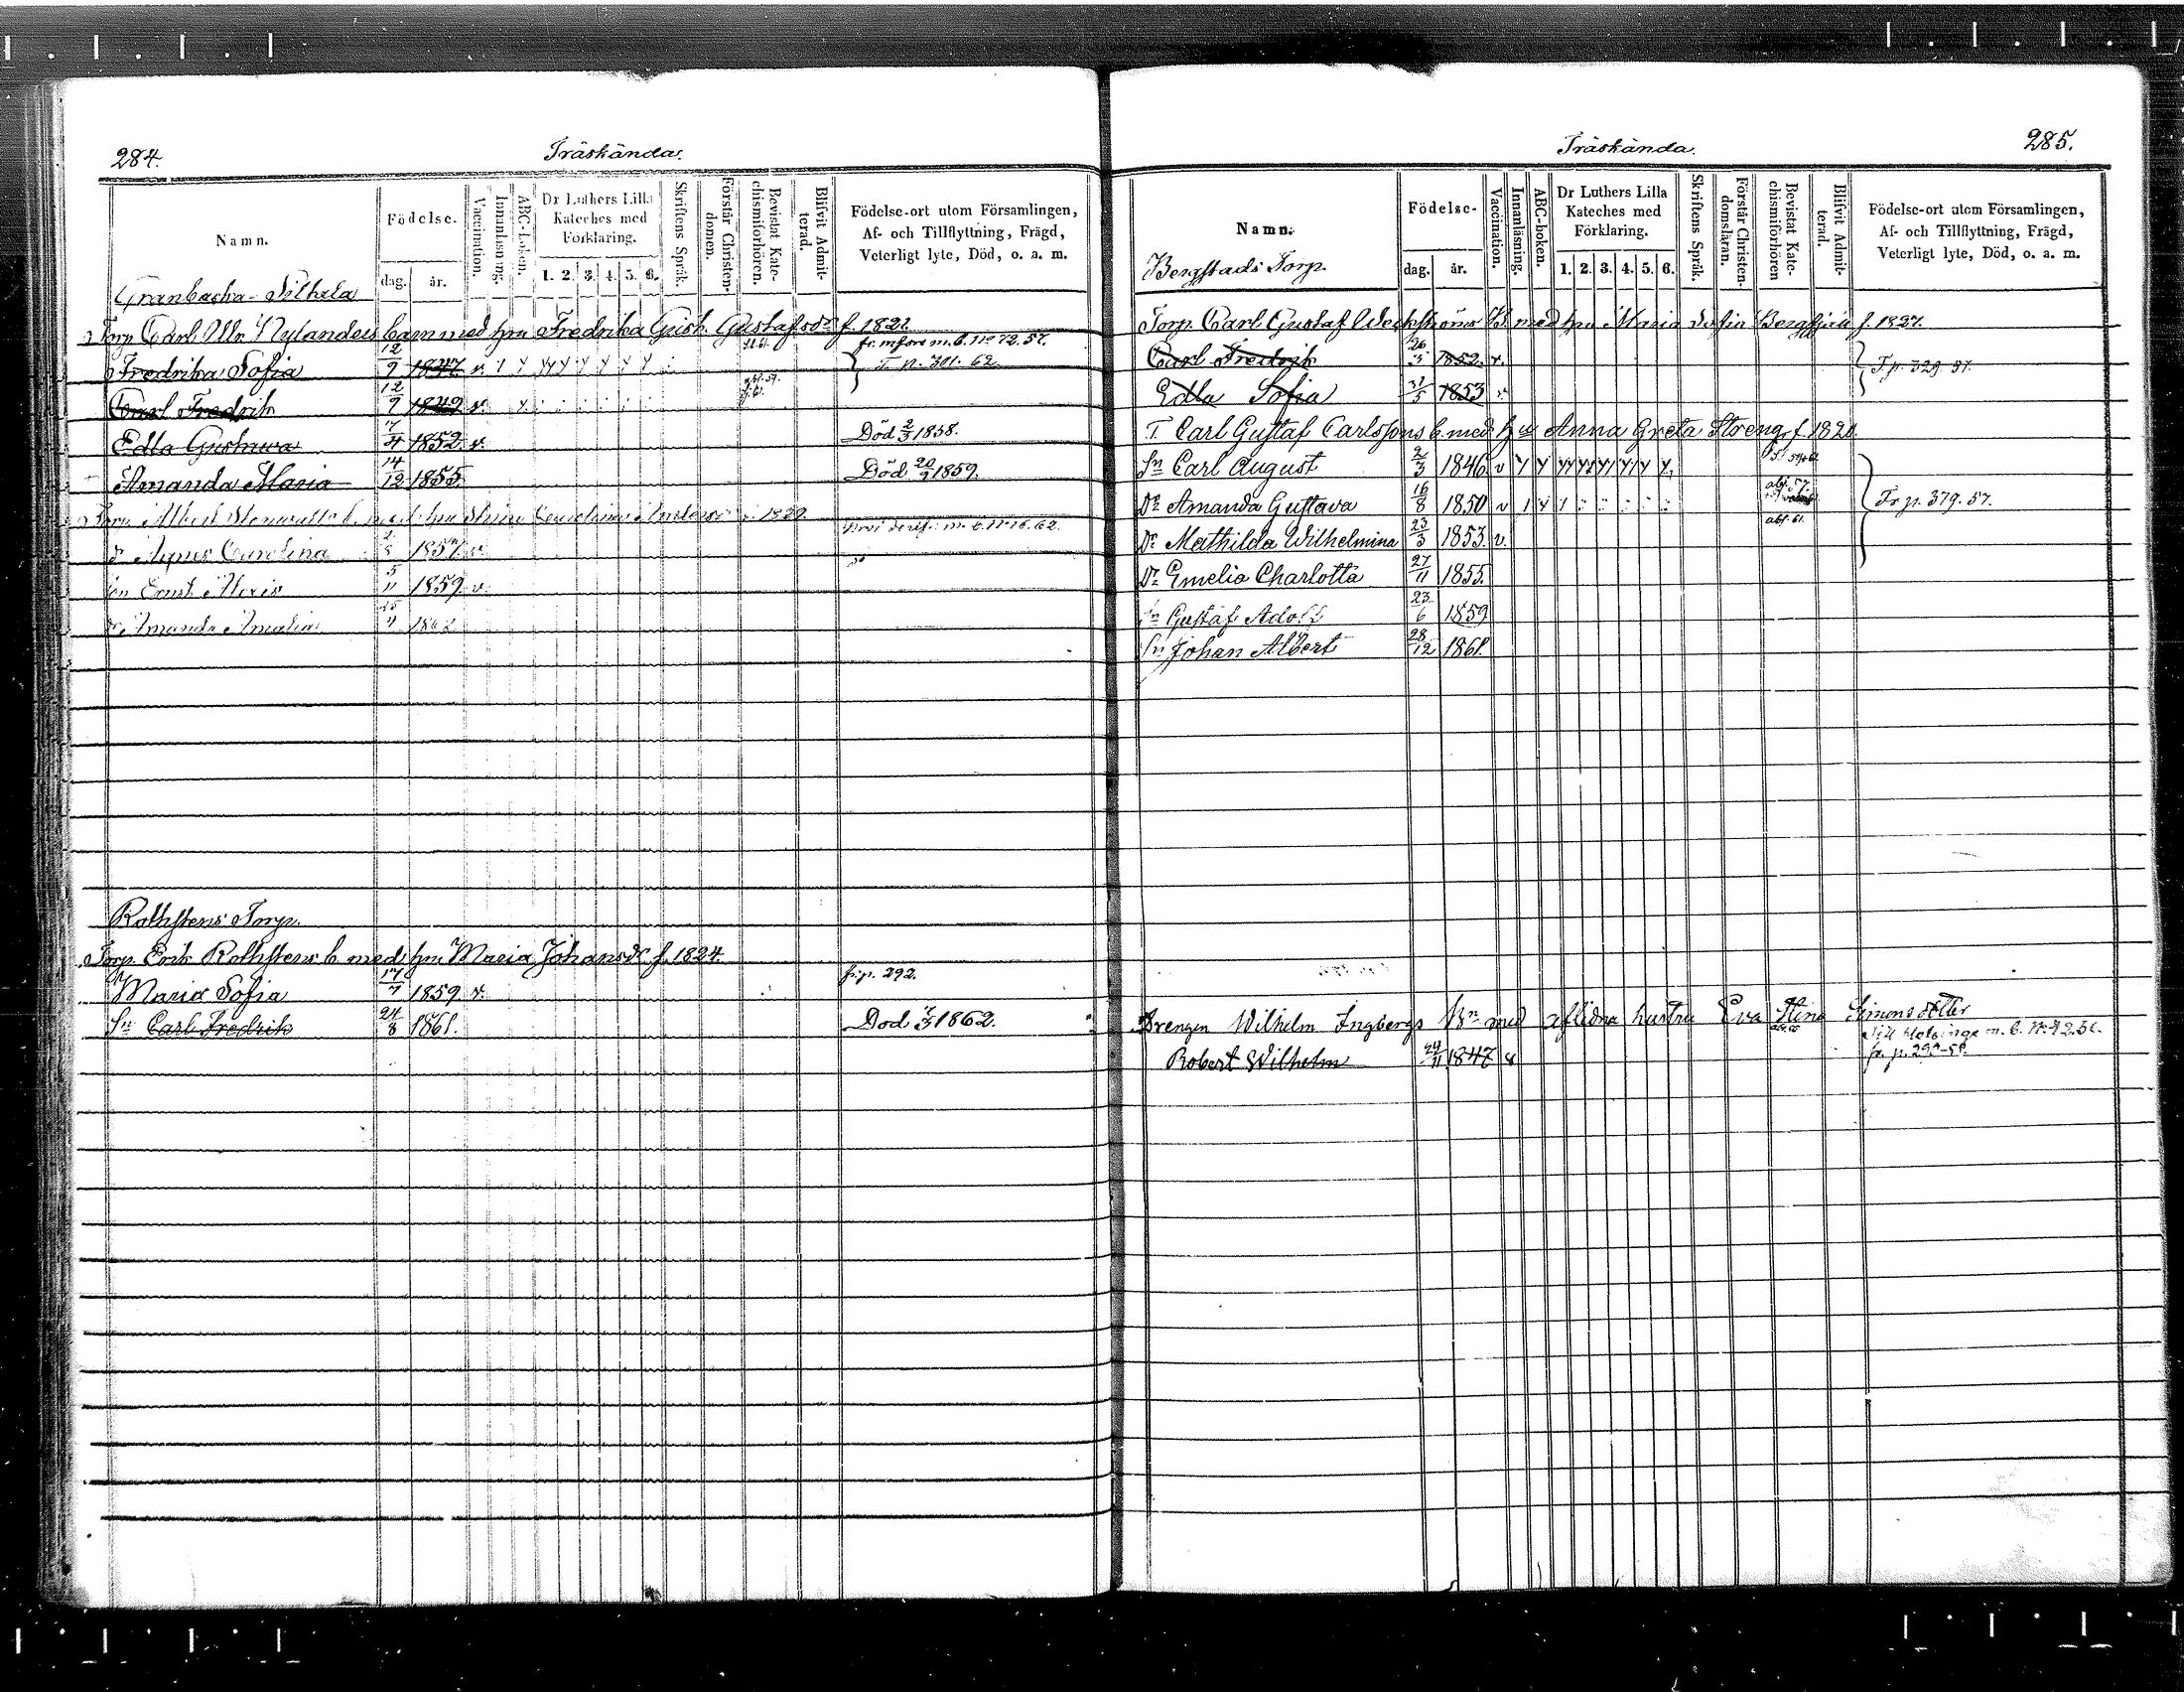 284.
Träskända.
Namn.
Födelse.
dag. år.
Vaccination.
Innanläsning.
ABC-boken.
Dr Luthers Lilla Kateches med Förklaring.
1. 2. 3. 4. 5. 6.
Skriftens Språk.
Förstår Christendomen.
Bevistat Katechismiförhören.
Blifvit Admitterad.
Födelse-ort utom Församlingen, Af- och Tillflyttning, Frägd, Veterligt lyte, Död, o. a. m.
Granbacka
Torp. Carl Ulr. Nylanders barn med hu Fredrika Gust. Gustafsdr f. 1821.
Fredrika Sofia 12/9 1847 v.
m. b. No 72. 57.
T. p. 301. 62
Carl Fredrik 12/9 1849 v.
Edla Gustava 7/4 1852 v. Död 2/3 1858.
Amanda Maria 14/12 1855 Död 20/9 1859.
Torp. Albert
m. b. No 16. 62.
Dr Agnes Carolina 1857 v.
Sn Ernst Alexis 5/11 1859 v.
Dr Amanda Amalia 1862
Rothstens Torp.
Torp. Erik Rothstens b. med hu Maria Johansdr f. 1824.
Maria Sofia 17/7 1859 v. fr. p. 292.
Sn Carl Fredrik 24/8 1861. Död 1862.
285.
Träskända.
Namn.
Bergstads Torp.
Födelse-
dag. år.
Vaccination.
Innanläsning.
ABC-boken.
Dr Luthers Lilla Kateches med Förklaring.
1. 2. 3. 4. 5. 6.
Skriftens Språk.
Förstår Christendomsläran.
Bevistat Katechismiförhören
Blifvit Admitterad.
Födelse-ort utom Församlingen, Af- och Tillflyttning, Frägd, Veterligt lyte, Död, o. a. m.
Torp. Carl Gustaf Weckströms B. med hu Maria Sofia f. 1827.
Carl Fredrik 26/3 1852. v.
T. p. 329. 57.
Edla Sofia 31/5 1853 v.
T. Carl Gustaf Carlssons b. med hu Anna Greta Streng f. 1820
Sn Carl August 2/3 1846. v
Dr Amanda Gustava 16/8 1850 v
Fr. p. 379. 57.
Dr Mathilda Wilhelmina 23/3 1853. v. abs. 61.
Dr Emelia Charlotta 27/11 1855.
Sn Gustaf Adolf 23/6 1859
Sn Johan Albert 28/12 1861.
Drengen Wilhelm Ingbergs Bn med aflidna hustru Eva Stina Simonsdotter
Robert Wilhelm 24/11 1847 v